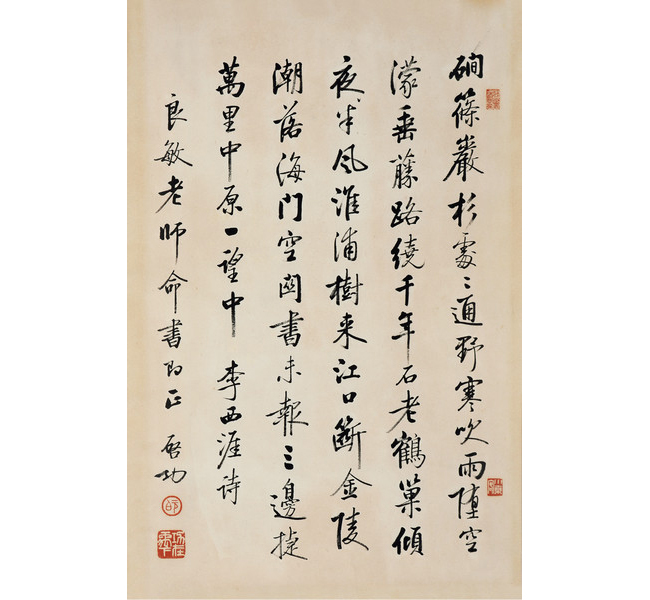 磵篠巖杉處〻通野寒吹雨墮空
濛垂藤路繞千年石老鶴巢傾
夜半風淮浦樹來江口斷金陵
潮落海門空關書未報三邊捷
萬里中原一望中 李西涯诗
良敏老師命書即正 启功